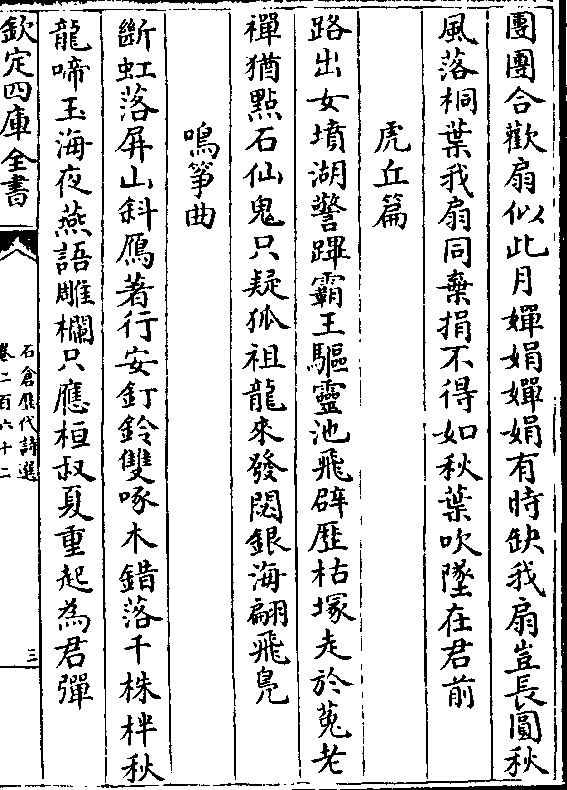 團團合歡扇似此月嬋娟嬋娟有時缺我扇豈長圓秋
風落桐葉我扇同棄捐不得如秋葉吹墜在君前
虎丘篇
路出女墳湖警蹕霸王驅靈池飛辟歷枯塚走於菟老
禪猶點石仙鬼只疑狐祖龍來發閟銀海翩飛鳧
鳴箏曲
斷虹落屏山斜鴈著行安釘鈴雙啄木錯落千株柈秋
龍啼玉海夜燕語雕欄只應桓叔夏重起為君彈
欽定四庫全書
石倉歷代詩選
卷二百六十二
三